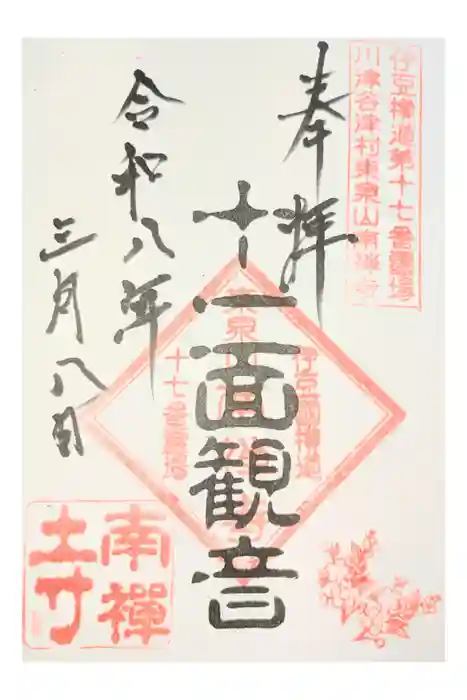 伊豆横道第十七番霊場
川津谷津村東泉山南禅寺
奉拝
十一面観音
令和八年
三月八日
東泉山南禅寺
伊豆国横道
十七番霊場
南禪
寺